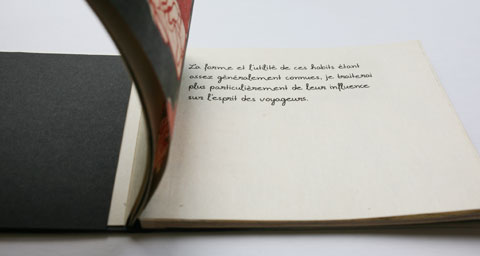 La forme et l'utilité de ces habits étant
assez généralement connues, je traiterai
plus particulièrement de leur influence
sur l'esprit des voyageurs.